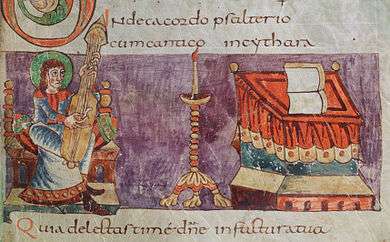 INdecacordo psalterio
cumcantico incythara
Quia delectasti me dn̄e infacturatua